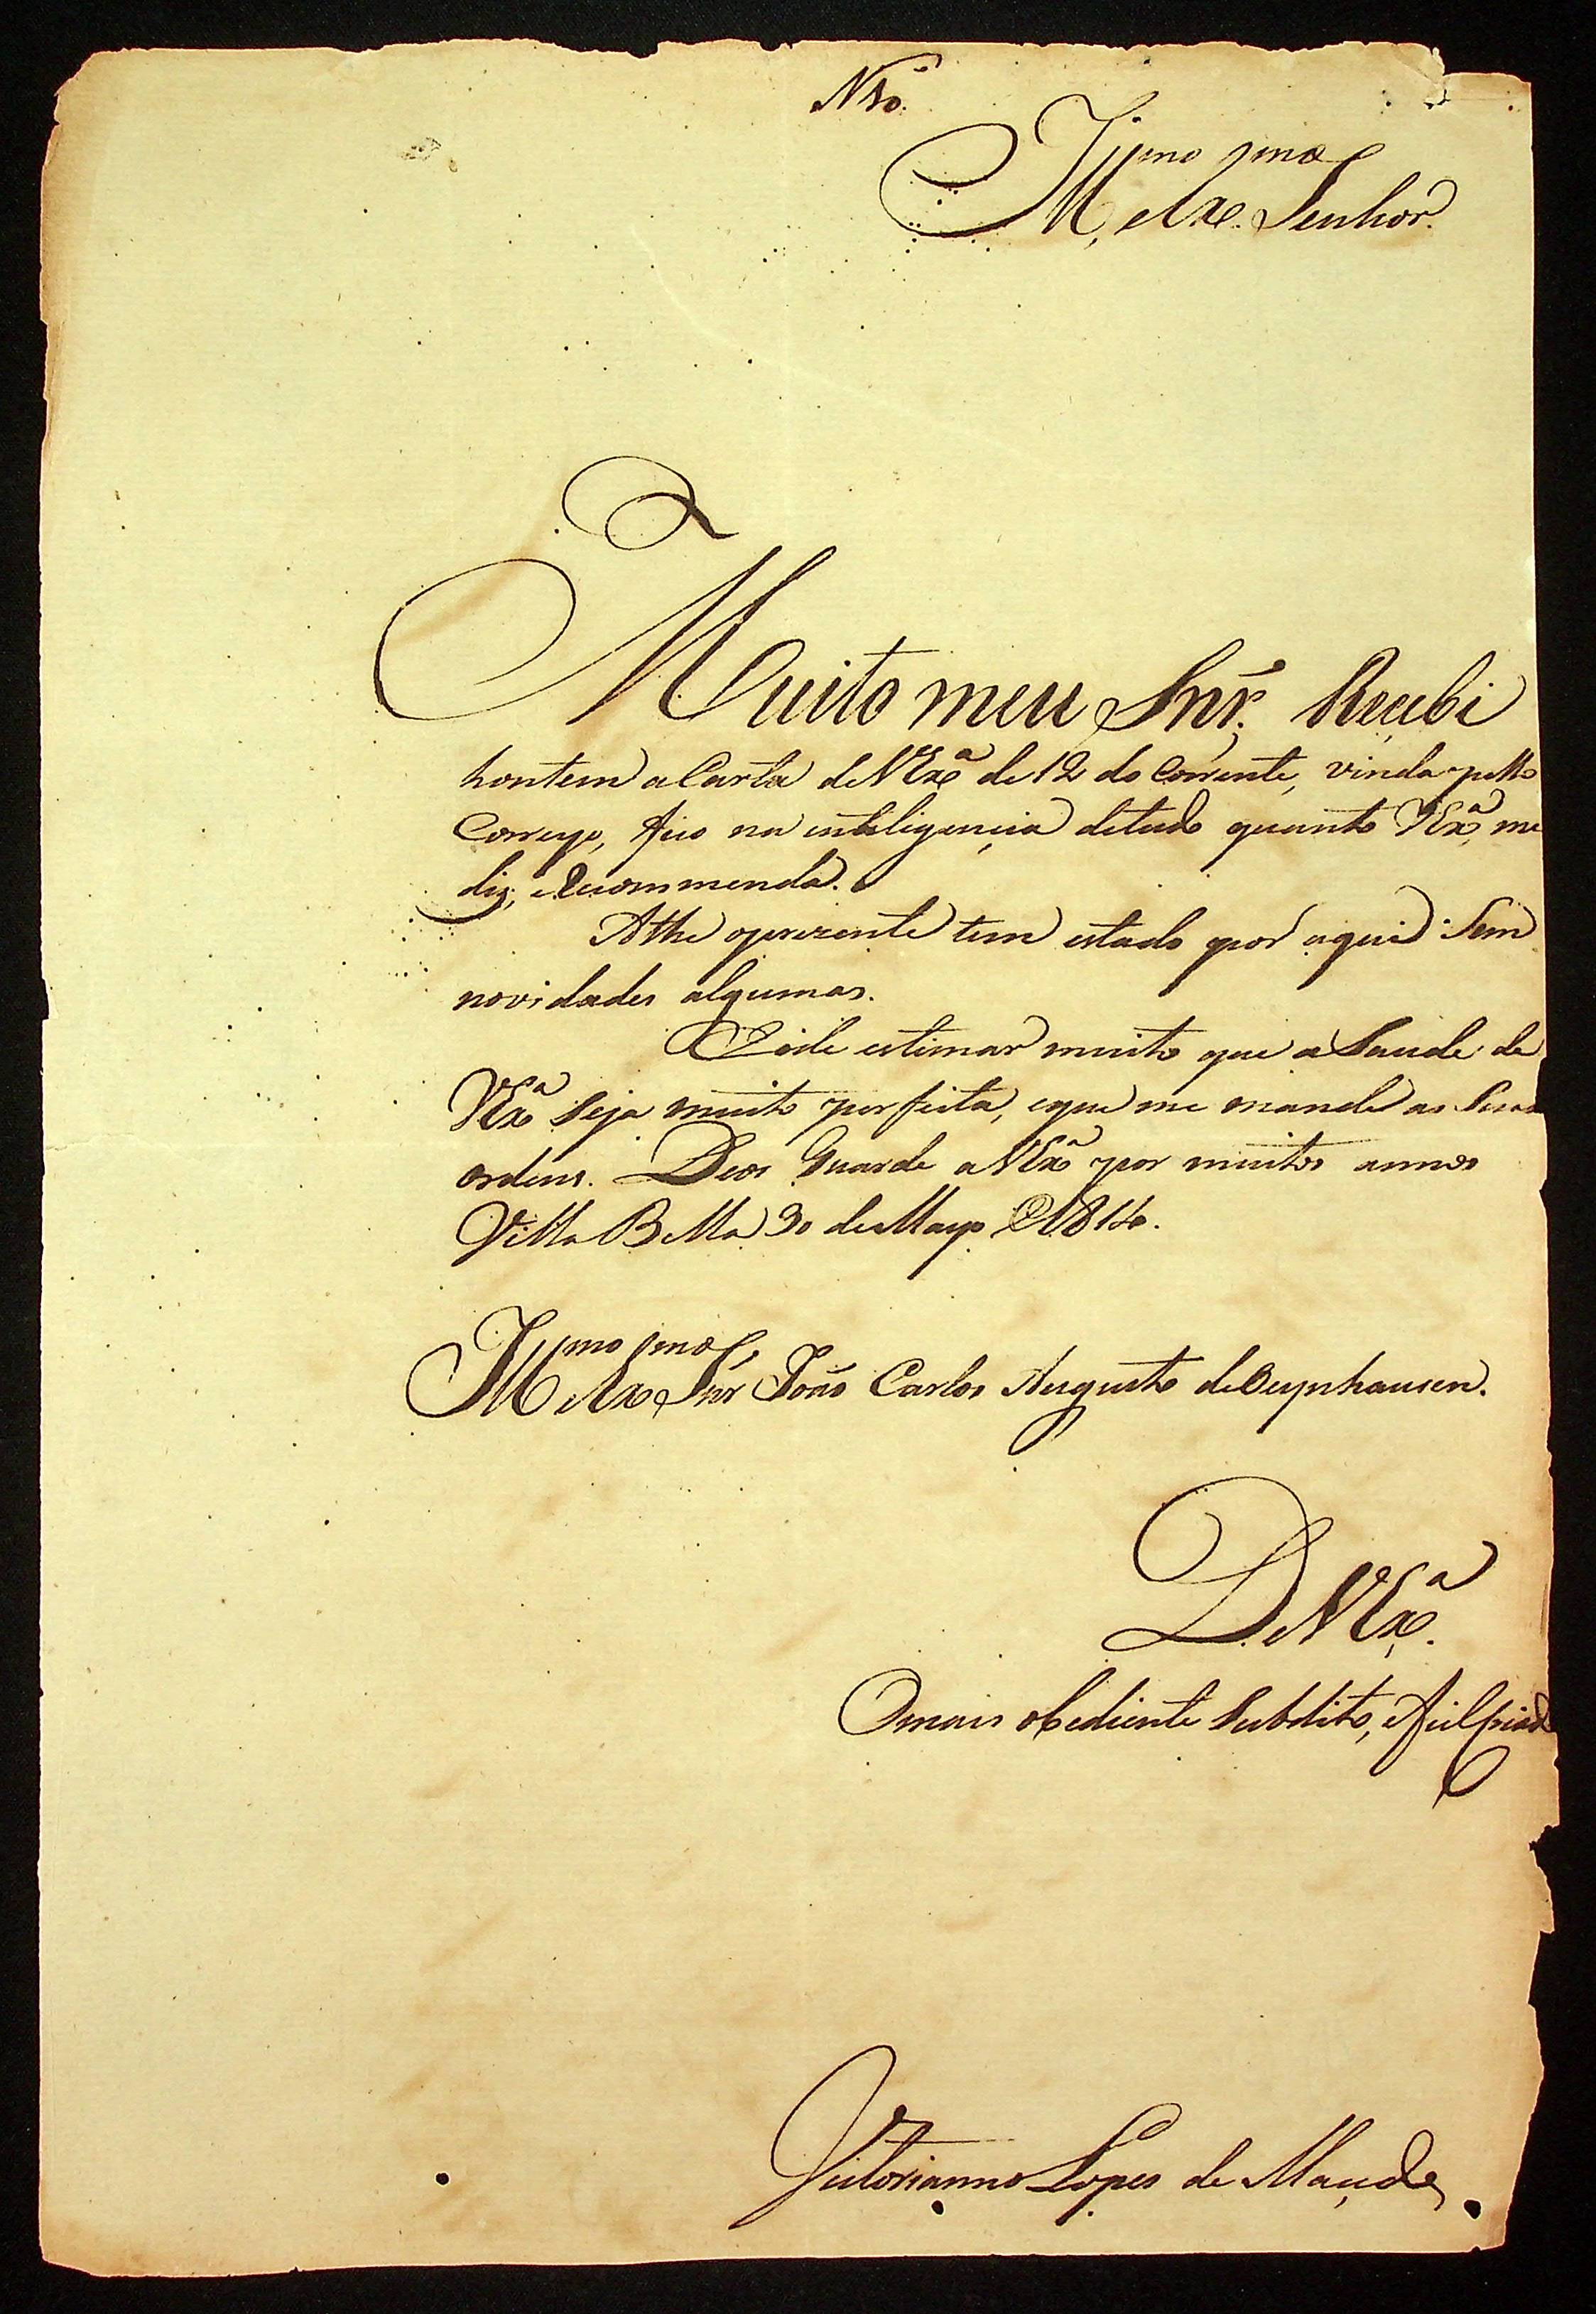 Ill.mo e Ex.mo Senhor.
Muito meu Snr. Reçebi
hontem a Carta de VEx.a de 12 do Corrente, vinda pello
Correyo, fico na inteligençia de tudo quanto VEx.a me
diz, e Recommenda.
Athe o prezente tem estado por aqui Sem
novidades algumas.
Hei de estimar muito que a Saude de
VEx.a Seja muito perfeita, e que me mande as Suas
ordens. Deos Guarde a VEx.a por muitos annos
Villa Bella 30 de Mayo de 1814.
Ill.mo e Ex.mo Snr João Carlos Augusto de Oeynhausen.
De VEx.a
O mais obediente Subdito, e fiel Criado
Victorianno Lopes de Maçedo